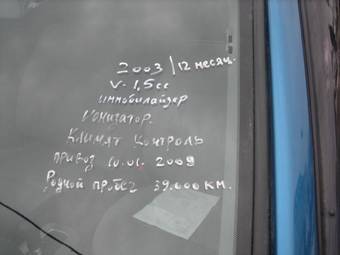 2003/12 месяц.
V-1,5cc
иммобилайзер
Ионизатор.
Климат контроль
привоз 10.01. 2009
Родной пробег 39.000 км.